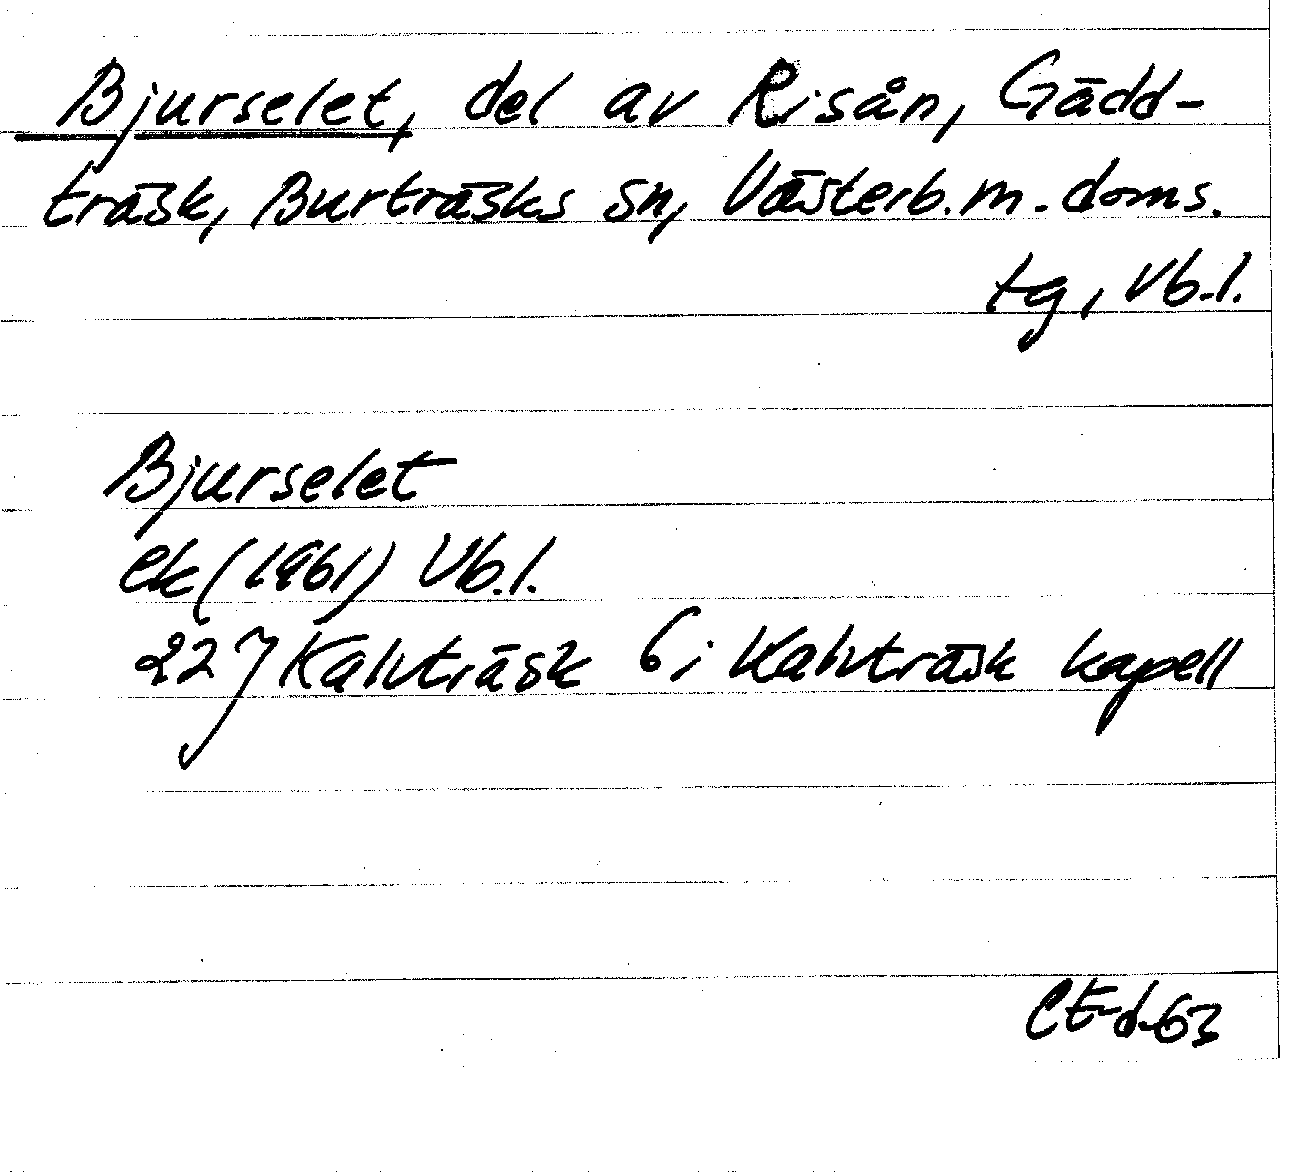 Bjurselet, del av Risån, Gädd-
träsk, Burträsks sn, Västerb. m. doms.
tg, Vb.l.
Bjurselet
ek (1961) Vb.l.
22 J Kalvträsk 6 i Kalvträsk kapell
CE-d-63